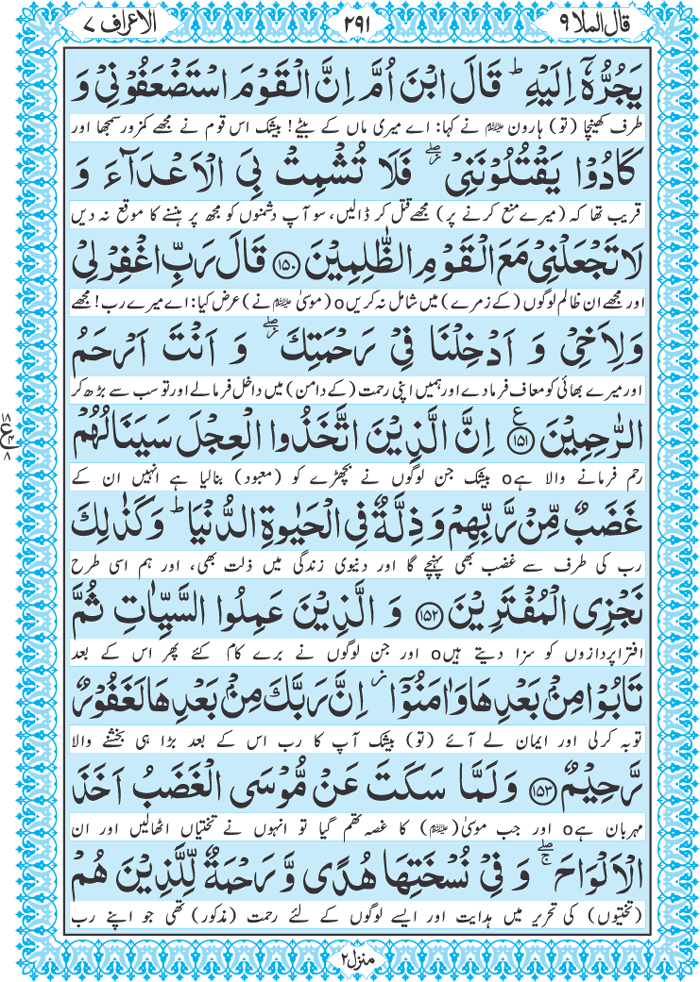 قال الملا ۹
۲۹۱
الاعراف ۷
يَجُرُّهٗۤ اِلَيْهِ ؕ قَالَ ابْنَ اُمَّ اِنَّ الْقَوْمَ اسْتَضْعَفُوْنِيْ وَ
طرف کھینچا (تو) ہارون ﷺ نے کہا: اے میری ماں کے بیٹے! بیشک اس قوم نے مجھے کمزور سمجھا اور
كَادُوْا يَقْتُلُوْنَنِيْ ۖ فَلَا تُشْمِتْ بِيَ الْاَعْدَآءَ وَ
قریب تھا کہ (میرے منع کرنے پر) مجھے قتل کر ڈالیں، سو آپ دشمنوں کو مجھ پر ہنسنے کا موقع نہ دیں
لَا تَجْعَلْنِيْ مَعَ الْقَوْمِ الظّٰلِمِيْنَ ۝۱۵۰ قَالَ رَبِّ اغْفِرْ لِيْ
اور مجھے ان ظالم لوگوں (کے زمرے) میں شامل نہ کریںo (موسیٰ ﷺ نے) عرض کیا: اے میرے رب! مجھے
وَلِاَخِيْ وَ اَدْخِلْنَا فِيْ رَحْمَتِكَ ۖ وَ اَنْتَ اَرْحَمُ
اور میرے بھائی کو معاف فرما دے اور ہمیں اپنی رحمت (کے دامن) میں داخل فرما لے اور تو سب سے بڑھ کر
الرّٰحِمِيْنَ ۝۱۵۱ع اِنَّ الَّذِيْنَ اتَّخَذُوا الْعِجْلَ سَيَنَالُهُمْ
رحم فرمانے والا ہےo بیشک جن لوگوں نے بچھڑے کو (معبود) بنالیا ہے انہیں ان کے
۱۸
ع
۴
۸
غَضَبٌ مِّنْ رَّبِّهِمْ وَ ذِلَّةٌ فِي الْحَيٰوةِ الدُّنْيَا ؕ وَ كَذٰلِكَ
رب کی طرف سے غضب بھی پہنچے گا اور دنیوی زندگی میں ذلت بھی، اور ہم اسی طرح
نَجْزِي الْمُفْتَرِيْنَ ۝۱۵۲ وَ الَّذِيْنَ عَمِلُوا السَّيِّاٰتِ ثُمَّ
افترا پردازوں کو سزا دیتے ہیںo اور جن لوگوں نے برے کام کئے پھر اس کے بعد
تَابُوْا مِنْۢ بَعْدِهَا وَ اٰمَنُوْۤا ؗ اِنَّ رَبَّكَ مِنْۢ بَعْدِهَا لَغَفُوْرٌ
توبہ کرلی اور ایمان لے آئے (تو) بیشک آپ کا رب اس کے بعد بڑا ہی بخشنے والا
رَّحِيْمٌ ۝۱۵۳ وَ لَمَّا سَكَتَ عَنْ مُّوْسَى الْغَضَبُ اَخَذَ
مہربان ہےo اور جب موسیٰ (ﷺ) کا غصہ تھم گیا تو انہوں نے تختیاں اٹھالیں اور ان
الْاَلْوَاحَ ۚۖ وَ فِيْ نُسْخَتِهَا هُدًى وَّ رَحْمَةٌ لِّلَّذِيْنَ هُمْ
(تختیوں) کی تحریر میں ہدایت اور ایسے لوگوں کے لئے رحمت (مذکور) تھی جو اپنے رب
منزل ۲